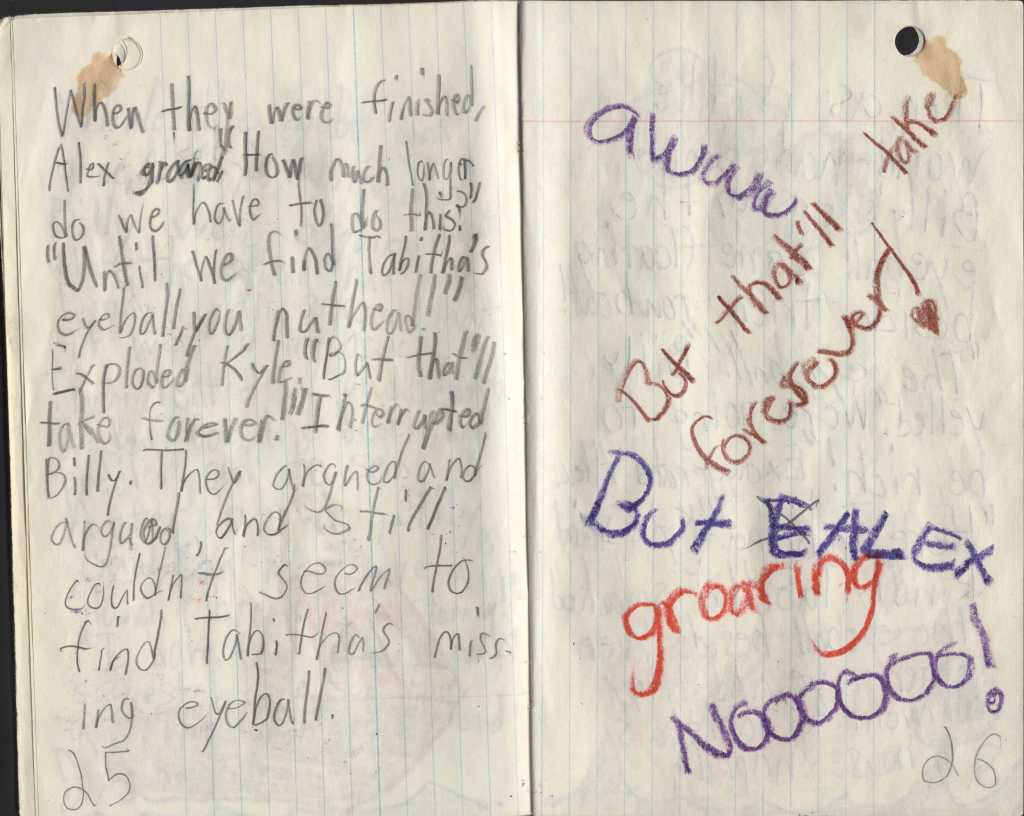 When they were finished,
Alex groaned "How much longer
do we have to do this?"
"Until we find Tabitha's
eyeball, you nuthead!"
Exploded Kyle. "But that'll
take forever!" Interrupted
Billy. They argued and
argued, and still
couldn't seem to
find Tabitha's miss-
ing eyeball.
25
awww
But that'll take
forever!
But ALEX
groaring
NOOOOOO!
26